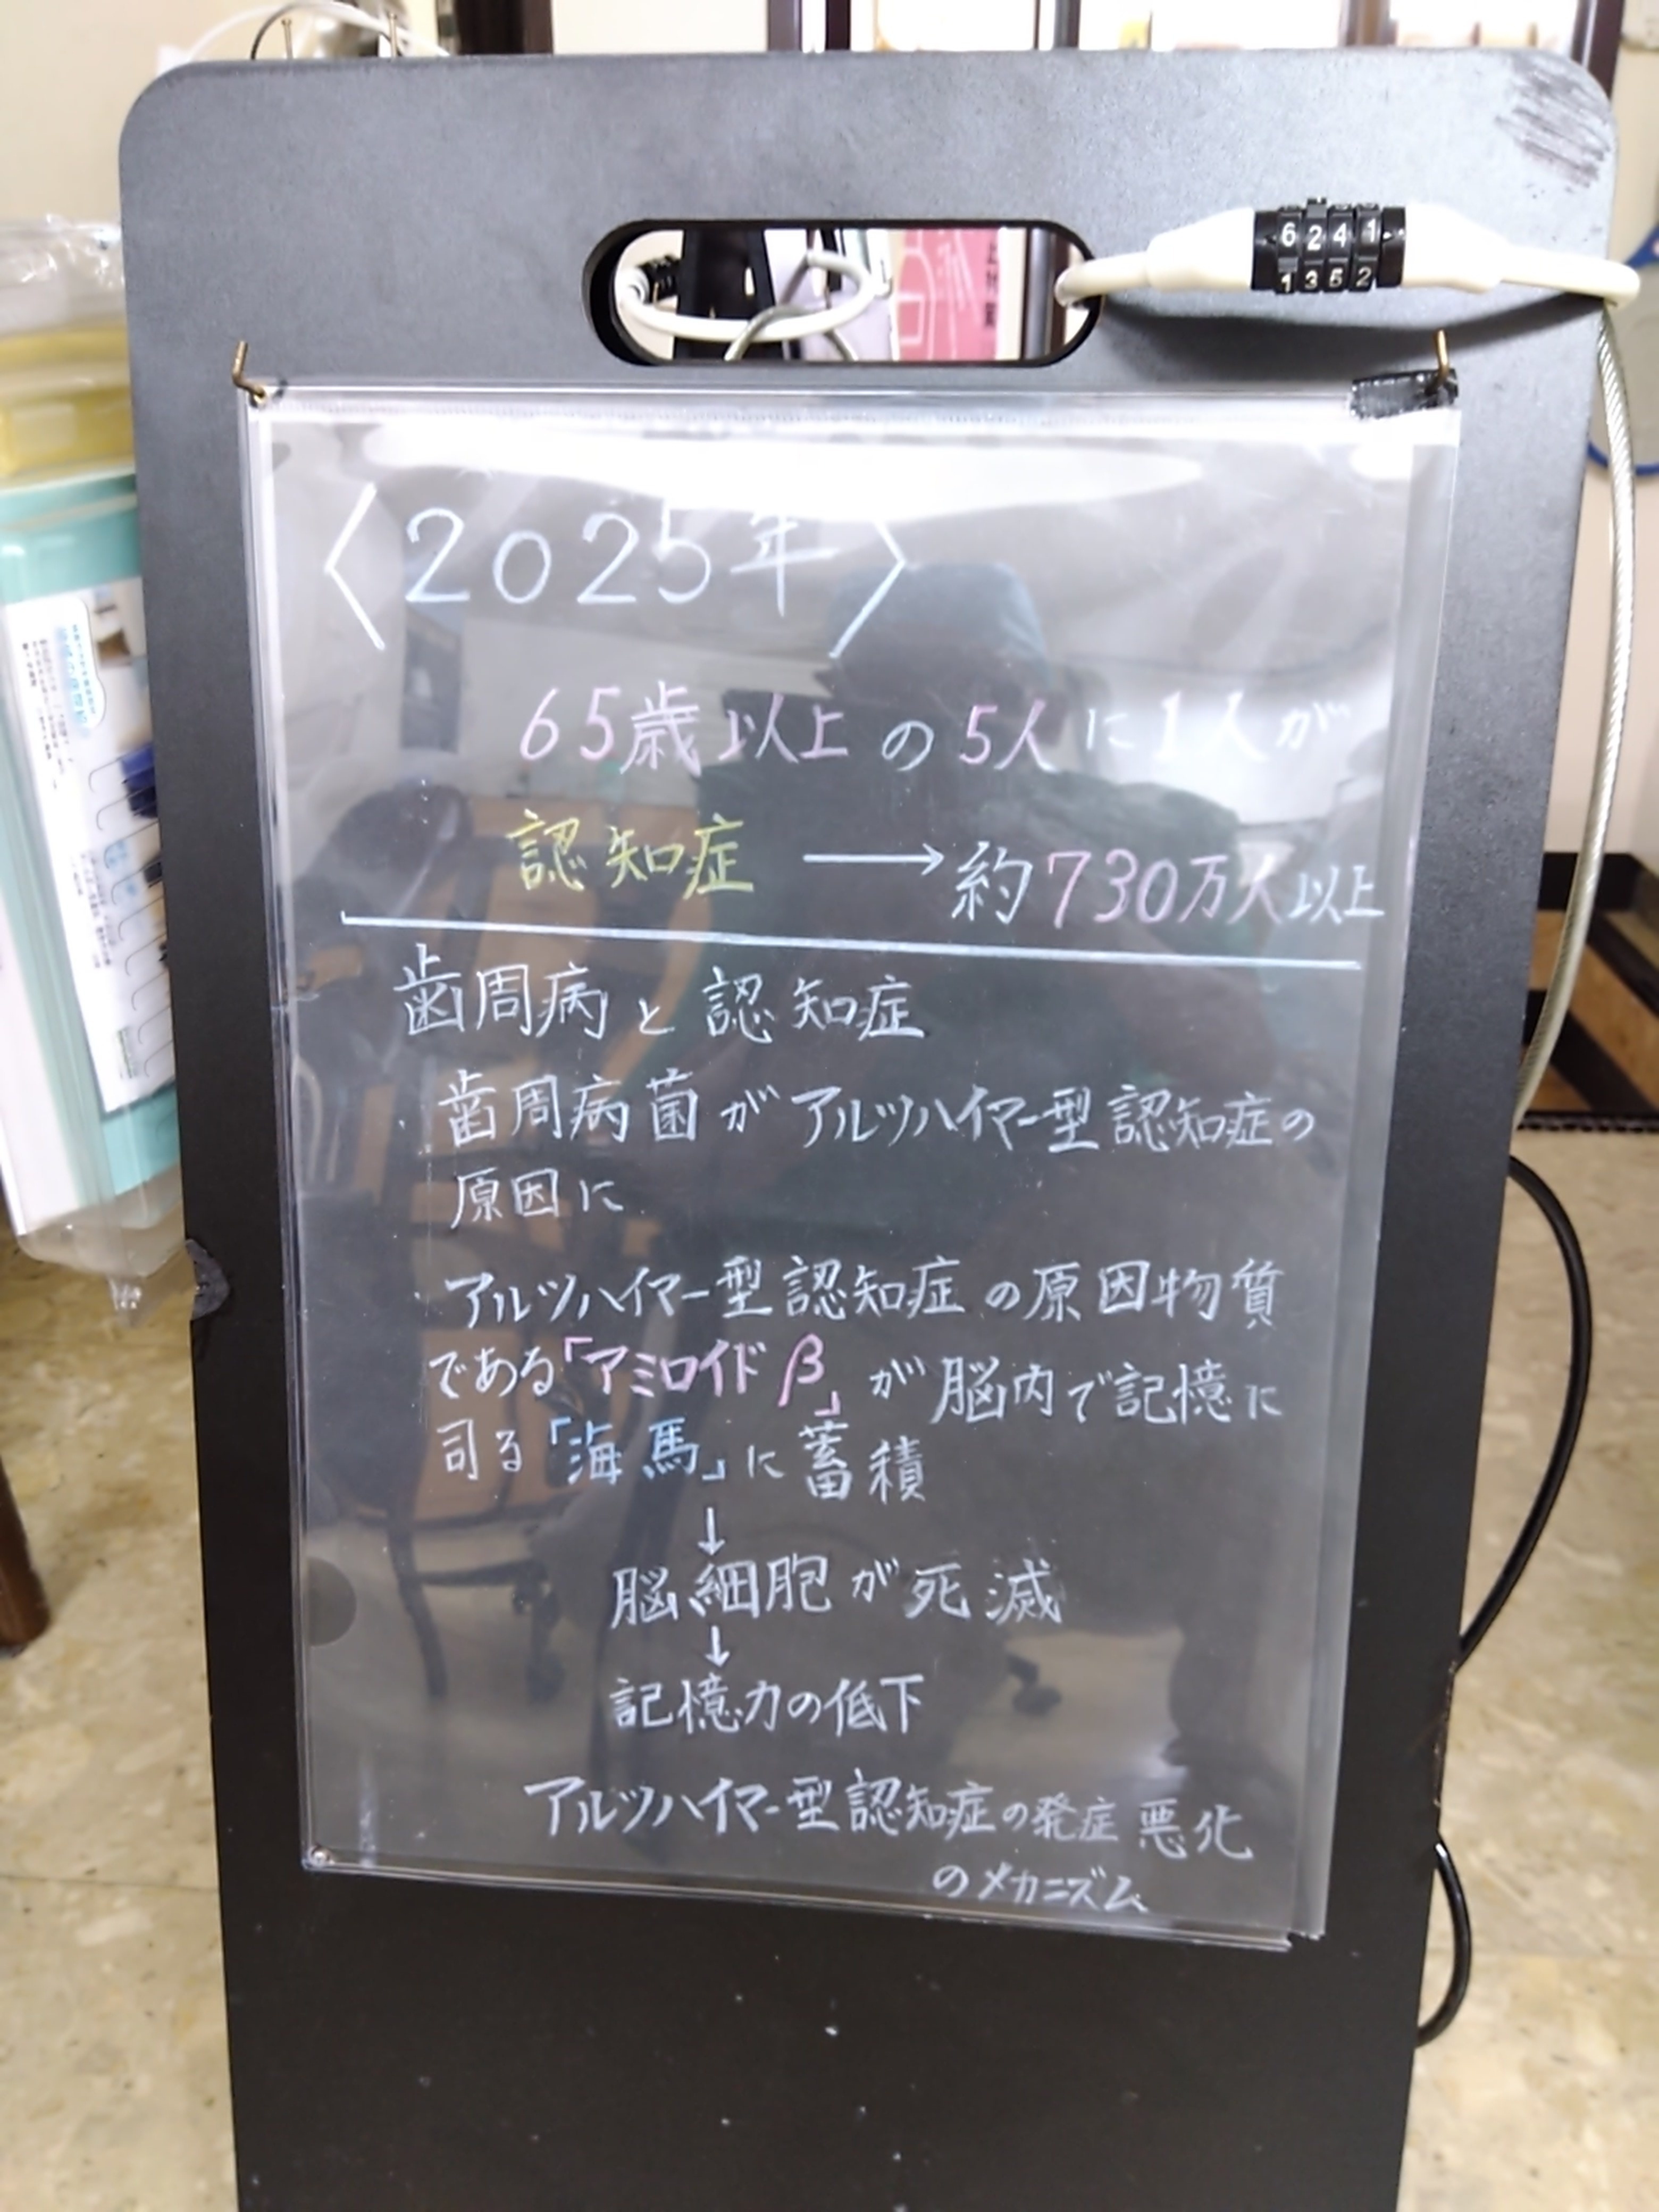 6241
1352
〈2025年〉
65歳以上の5人に1人が
認知症 → 約730万人以上
歯周病と認知症
・歯周病菌がアルツハイマー型認知症の
原因に
アルツハイマー型認知症の原因物質
である「アミロイドβ」が脳内で記憶に
司る「海馬」に蓄積
↓
脳細胞が死滅
↓
記憶力の低下
アルツハイマー型認知症の発症悪化
のメカニズム